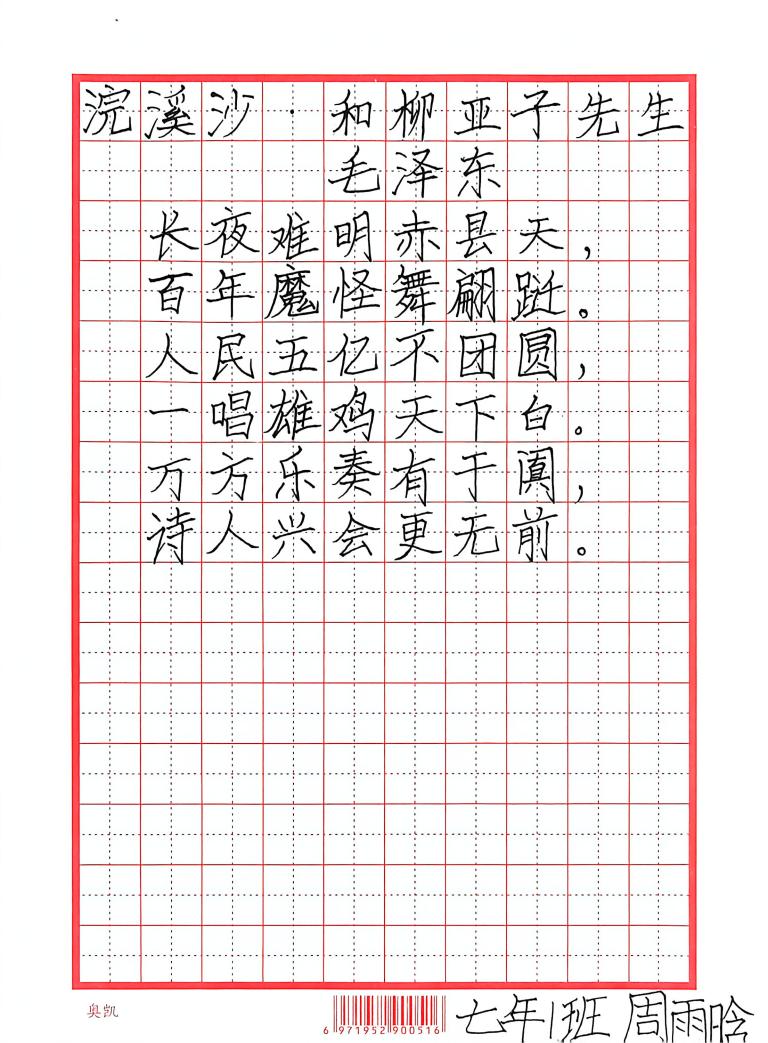 浣溪沙·和柳亚子先生
毛泽东
长夜难明赤县天，
百年魔怪舞翩跹。
人民五亿不团圆，
一唱雄鸡天下白。
万方乐奏有于阗，
诗人兴会更无前。
奥凯
6 971952 900516
七年1班 周雨晗